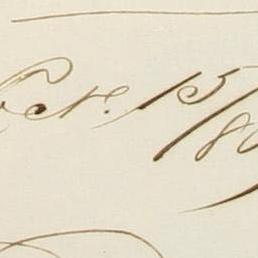 Oct. 15/8